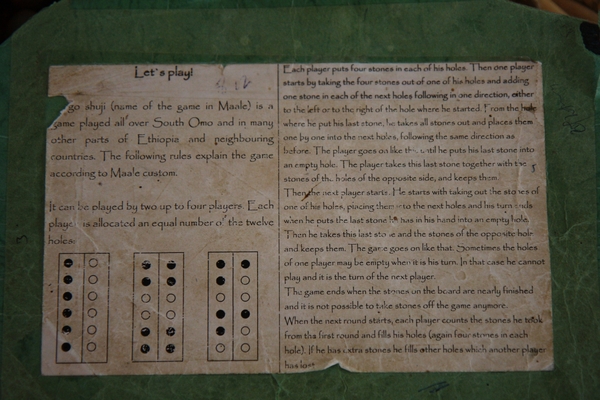 Let's play!
go shuji (name of the game in Maale) is a
game played all over South Omo and in many
other parts of Ethiopia and peighbouring
countries. The following rules explain the game
according to Maale custom.
It can be played by two up to four players. Each
player is allocated an equal number of the twelve
holes:
Each player puts four stones in each of his holes. Then one player
starts by taking the four stones out of one of his holes and adding
one stone in each of the next holes following in one direction, either
to the left or to the right of the hole where he started. From the hole
where he put his last stone, he takes all stones out and places them
one by one into the next holes, following the same direction as
before. The player goes on like this until he puts his last stone into
an empty hole. The player takes this last stone together with the
stones of the holes of the opposite side, and keeps them.
Then the next player starts. He starts with taking out the stones of
one of his holes, placing them into the next holes and his turn ends
when he puts the last stone he has in his hand into an empty hole.
Then he takes this last stone and the stones of the opposite hole
and keeps them. The game goes on like that. Sometimes the holes
of one player may be empty when it is his turn. In that case he cannot
play and it is the turn of the next player.
The game ends when the stones on the board are nearly finished
and it is not possible to take stones off the game anymore.
When the next round starts, each player counts the stones he took
from the first round and fills his holes (again four stones in each
hole). If he has extra stones he fills other holes which another player
has lost.